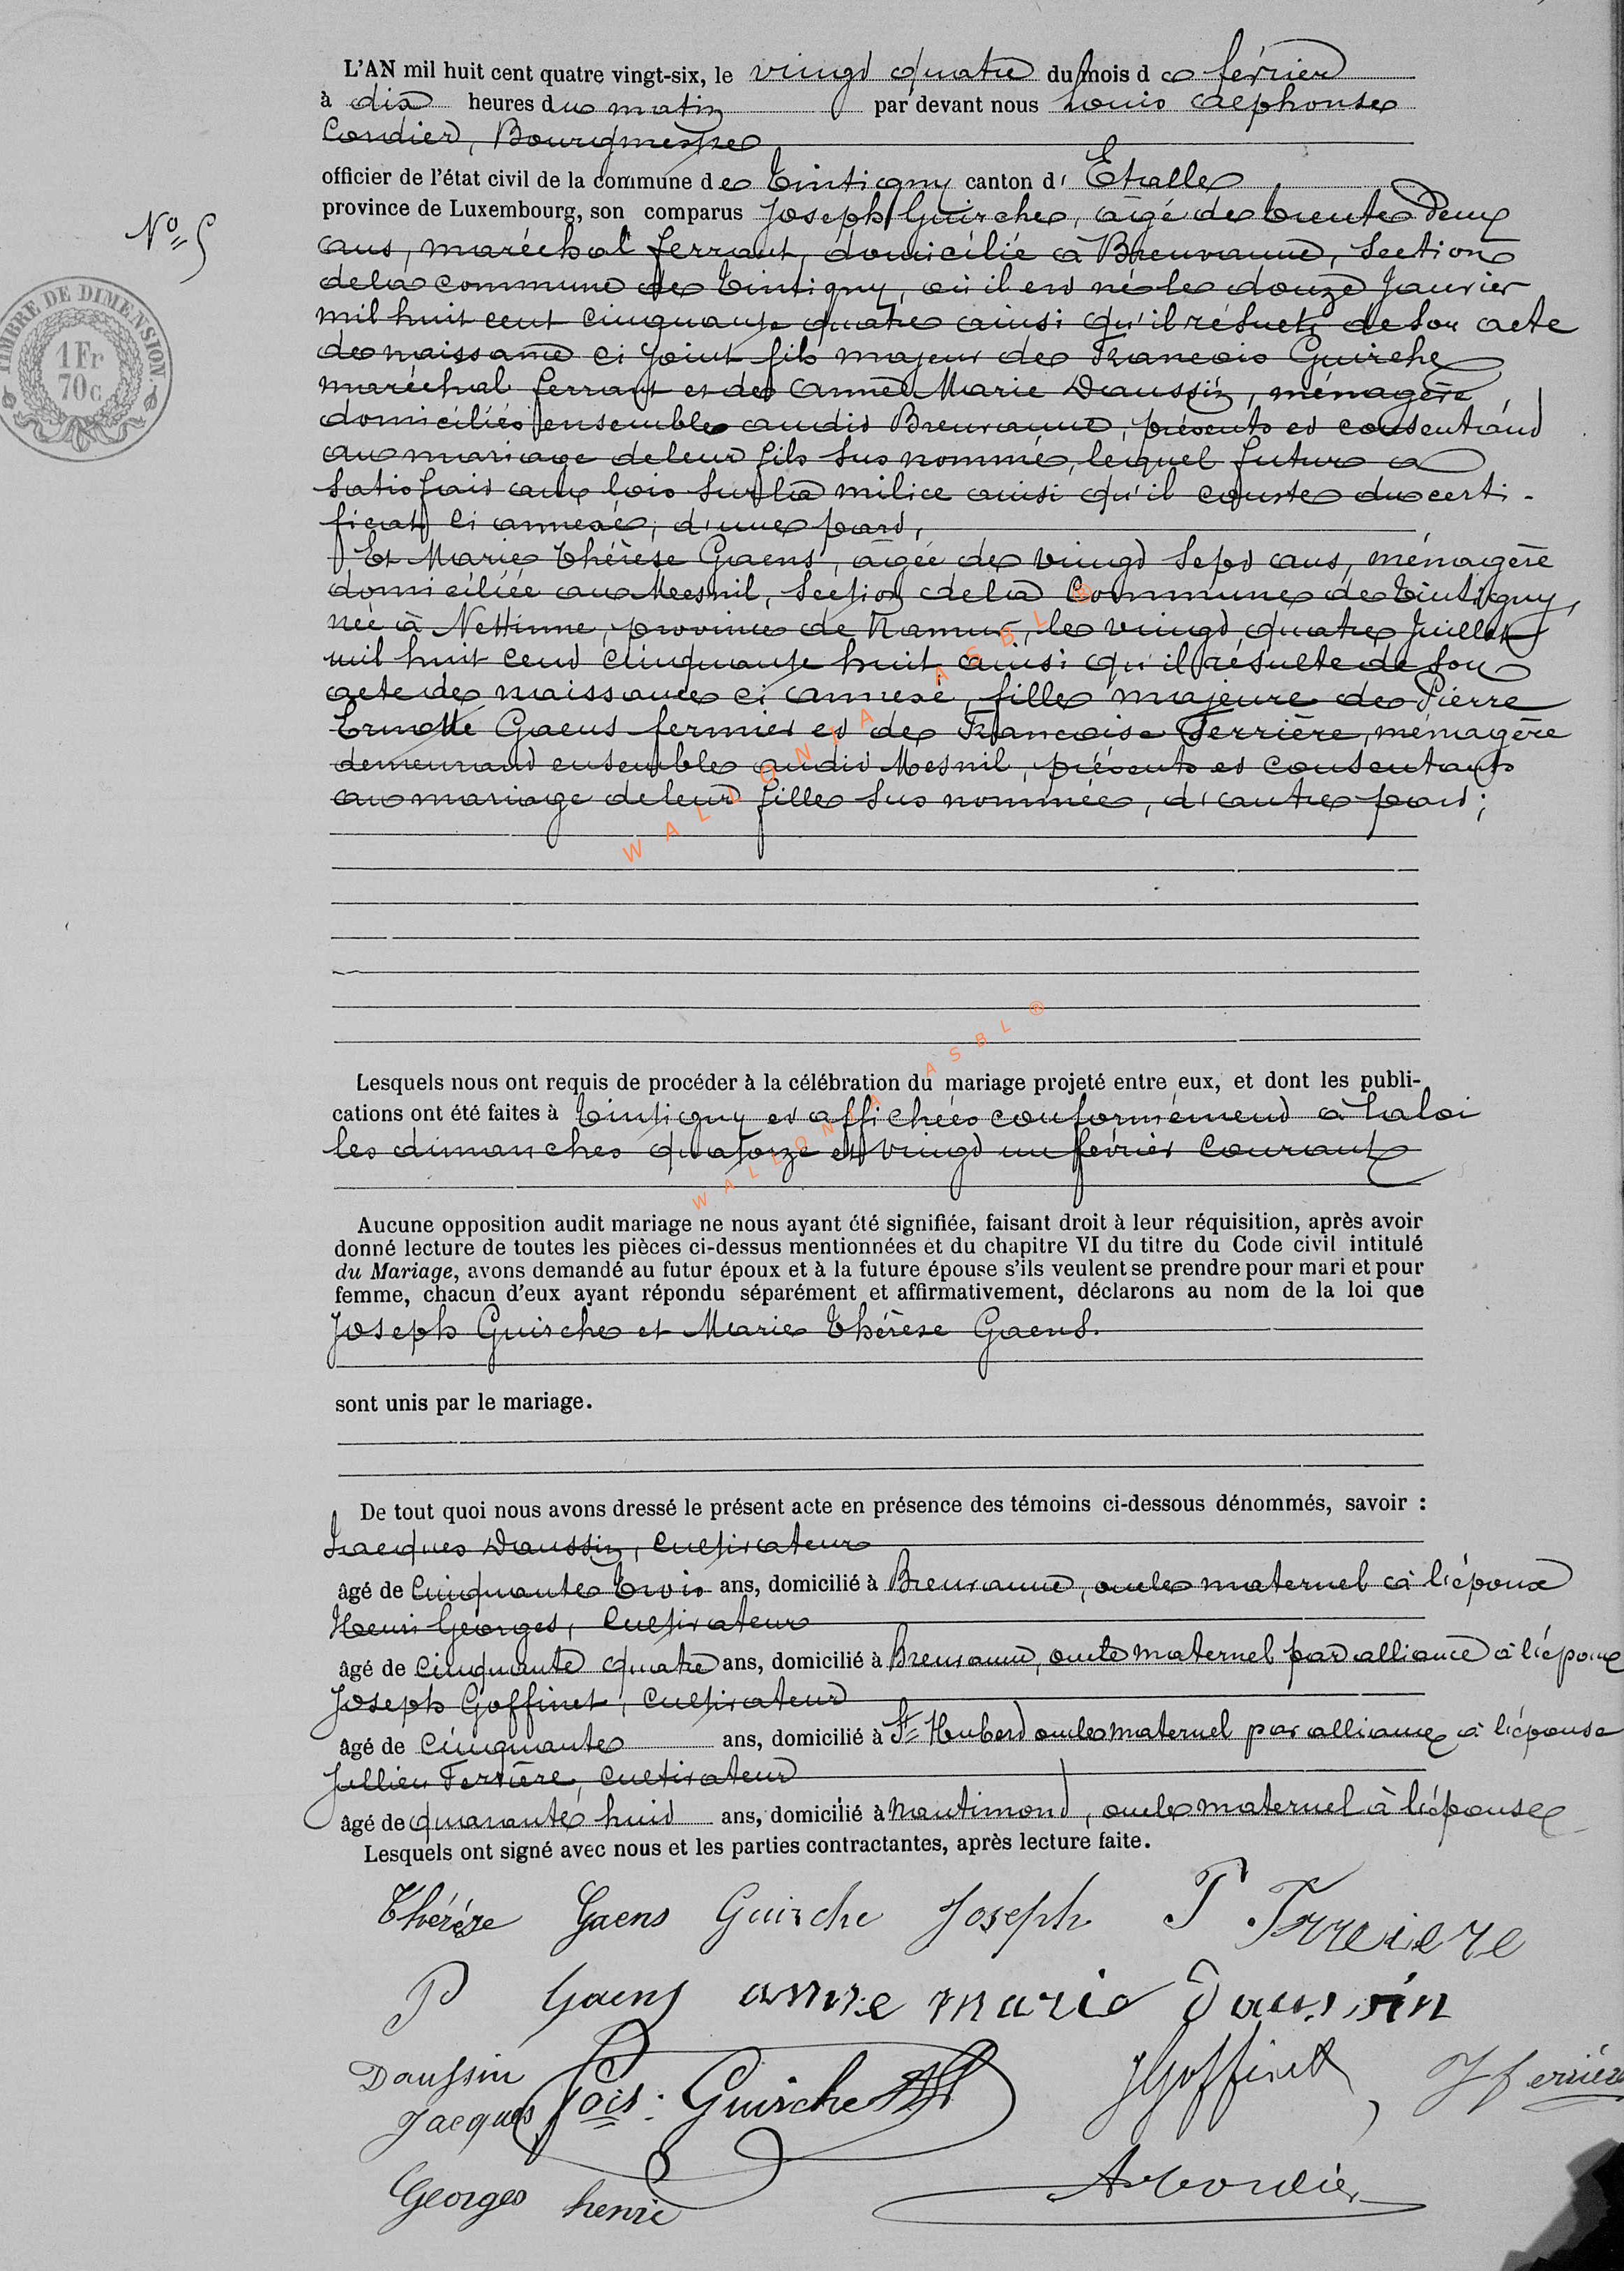 L'AN mil huit cent quatre vingt-six, le vingt quatre du mois de février
à dix heures du matin par devant nous Louis Alphonse
Cordier, Bourgmestre
officier de l'état civil de la commune de Tintigny canton d' Etalle
province de Luxembourg, son comparus Joseph Guirche, âgé de trente deux
ans, maréchal ferrant, domicilié à Breuvanne, Section
de la commune de Tintigny, où il est né le douze Janvier
mil huit cent cinquante quatre ainsi qu'il résulte de son acte
de naissance ci joint fils majeur de Francois Guirche
maréchal ferrant et de Anne Marie Daussin, ménagère
domiciliés ensemble audit Breuvanne, présents et consentant
au mariage de leur fils sus nommé, lequel futur a
satisfait aux lois sur la milice ainsi qu'il conste du certi-
ficat ci annexé, d'une part,
Et Marie Thérèse Gaens, âgée de vingt sept ans, ménagère
domiciliée au Mesnil, Section de la Commune de Tintigny,
née à Nettinne, province de Namur, le vingt quatre Juillet
mil huit cent cinquante huit ainsi qu'il résulte de son
acte de naissance ci annexé, fille majeure de Pierre
Gaens fermier et de Francoise Ferrière, ménagère
demeurant ensemble audit Mesnil, présents et consentants
au mariage de leur fille sus nommée, d'autre part;
Lesquels nous ont requis de procéder à la célébration du mariage projeté entre eux, et dont les publi-
cations ont été faites à Tintigny et affichées conformément à la loi
les dimanches quatorze et vingt un février courant
Aucune opposition audit mariage ne nous ayant été signifiée, faisant droit à leur réquisition, après avoir
donné lecture de toutes les pièces ci-dessus mentionnées et du chapitre VI du titre du Code civil intitulé
du Mariage, avons demandé au futur époux et à la future épouse s'ils veulent se prendre pour mari et pour
femme, chacun d'eux ayant répondu séparément et affirmativement, déclarons au nom de la loi que
Joseph Guirche et Marie Thérèse Gaens.
sont unis par le mariage.
De tout quoi nous avons dressé le présent acte en présence des témoins ci-dessous dénommés, savoir :
Jacques Daussin, Cultivateur
âgé de Cinquante Trois ans, domicilié à Breuvanne, oncle maternel à l'époux
Henri Georges, Cultivateur
âgé de cinquante quatre ans, domicilié à Breuvanne, oncle maternel par alliance à l'époux
Joseph Goffinet, Cultivateur
âgé de Cinquante ans, domicilié à St Hubert oncle maternel par alliance à l'épouse
Jullien Ferrière, Cultivateur
âgé de quarante huit ans, domicilié à Nantimont, oncle maternel à l'épouse
Lesquels ont signé avec nous et les parties contractantes, après lecture faite.
Thérèse Gaens Guirche Joseph
P Gaens anne marie Daussin
Daussin Jacques Fois: Guirche JGoffinet J ferrière
Georges henri ACordier
No 5
TIMBRE DE DIMENSION.
1 Fr
70 c
WALLONIA ASBL ®
WALLONIA ASBL ®